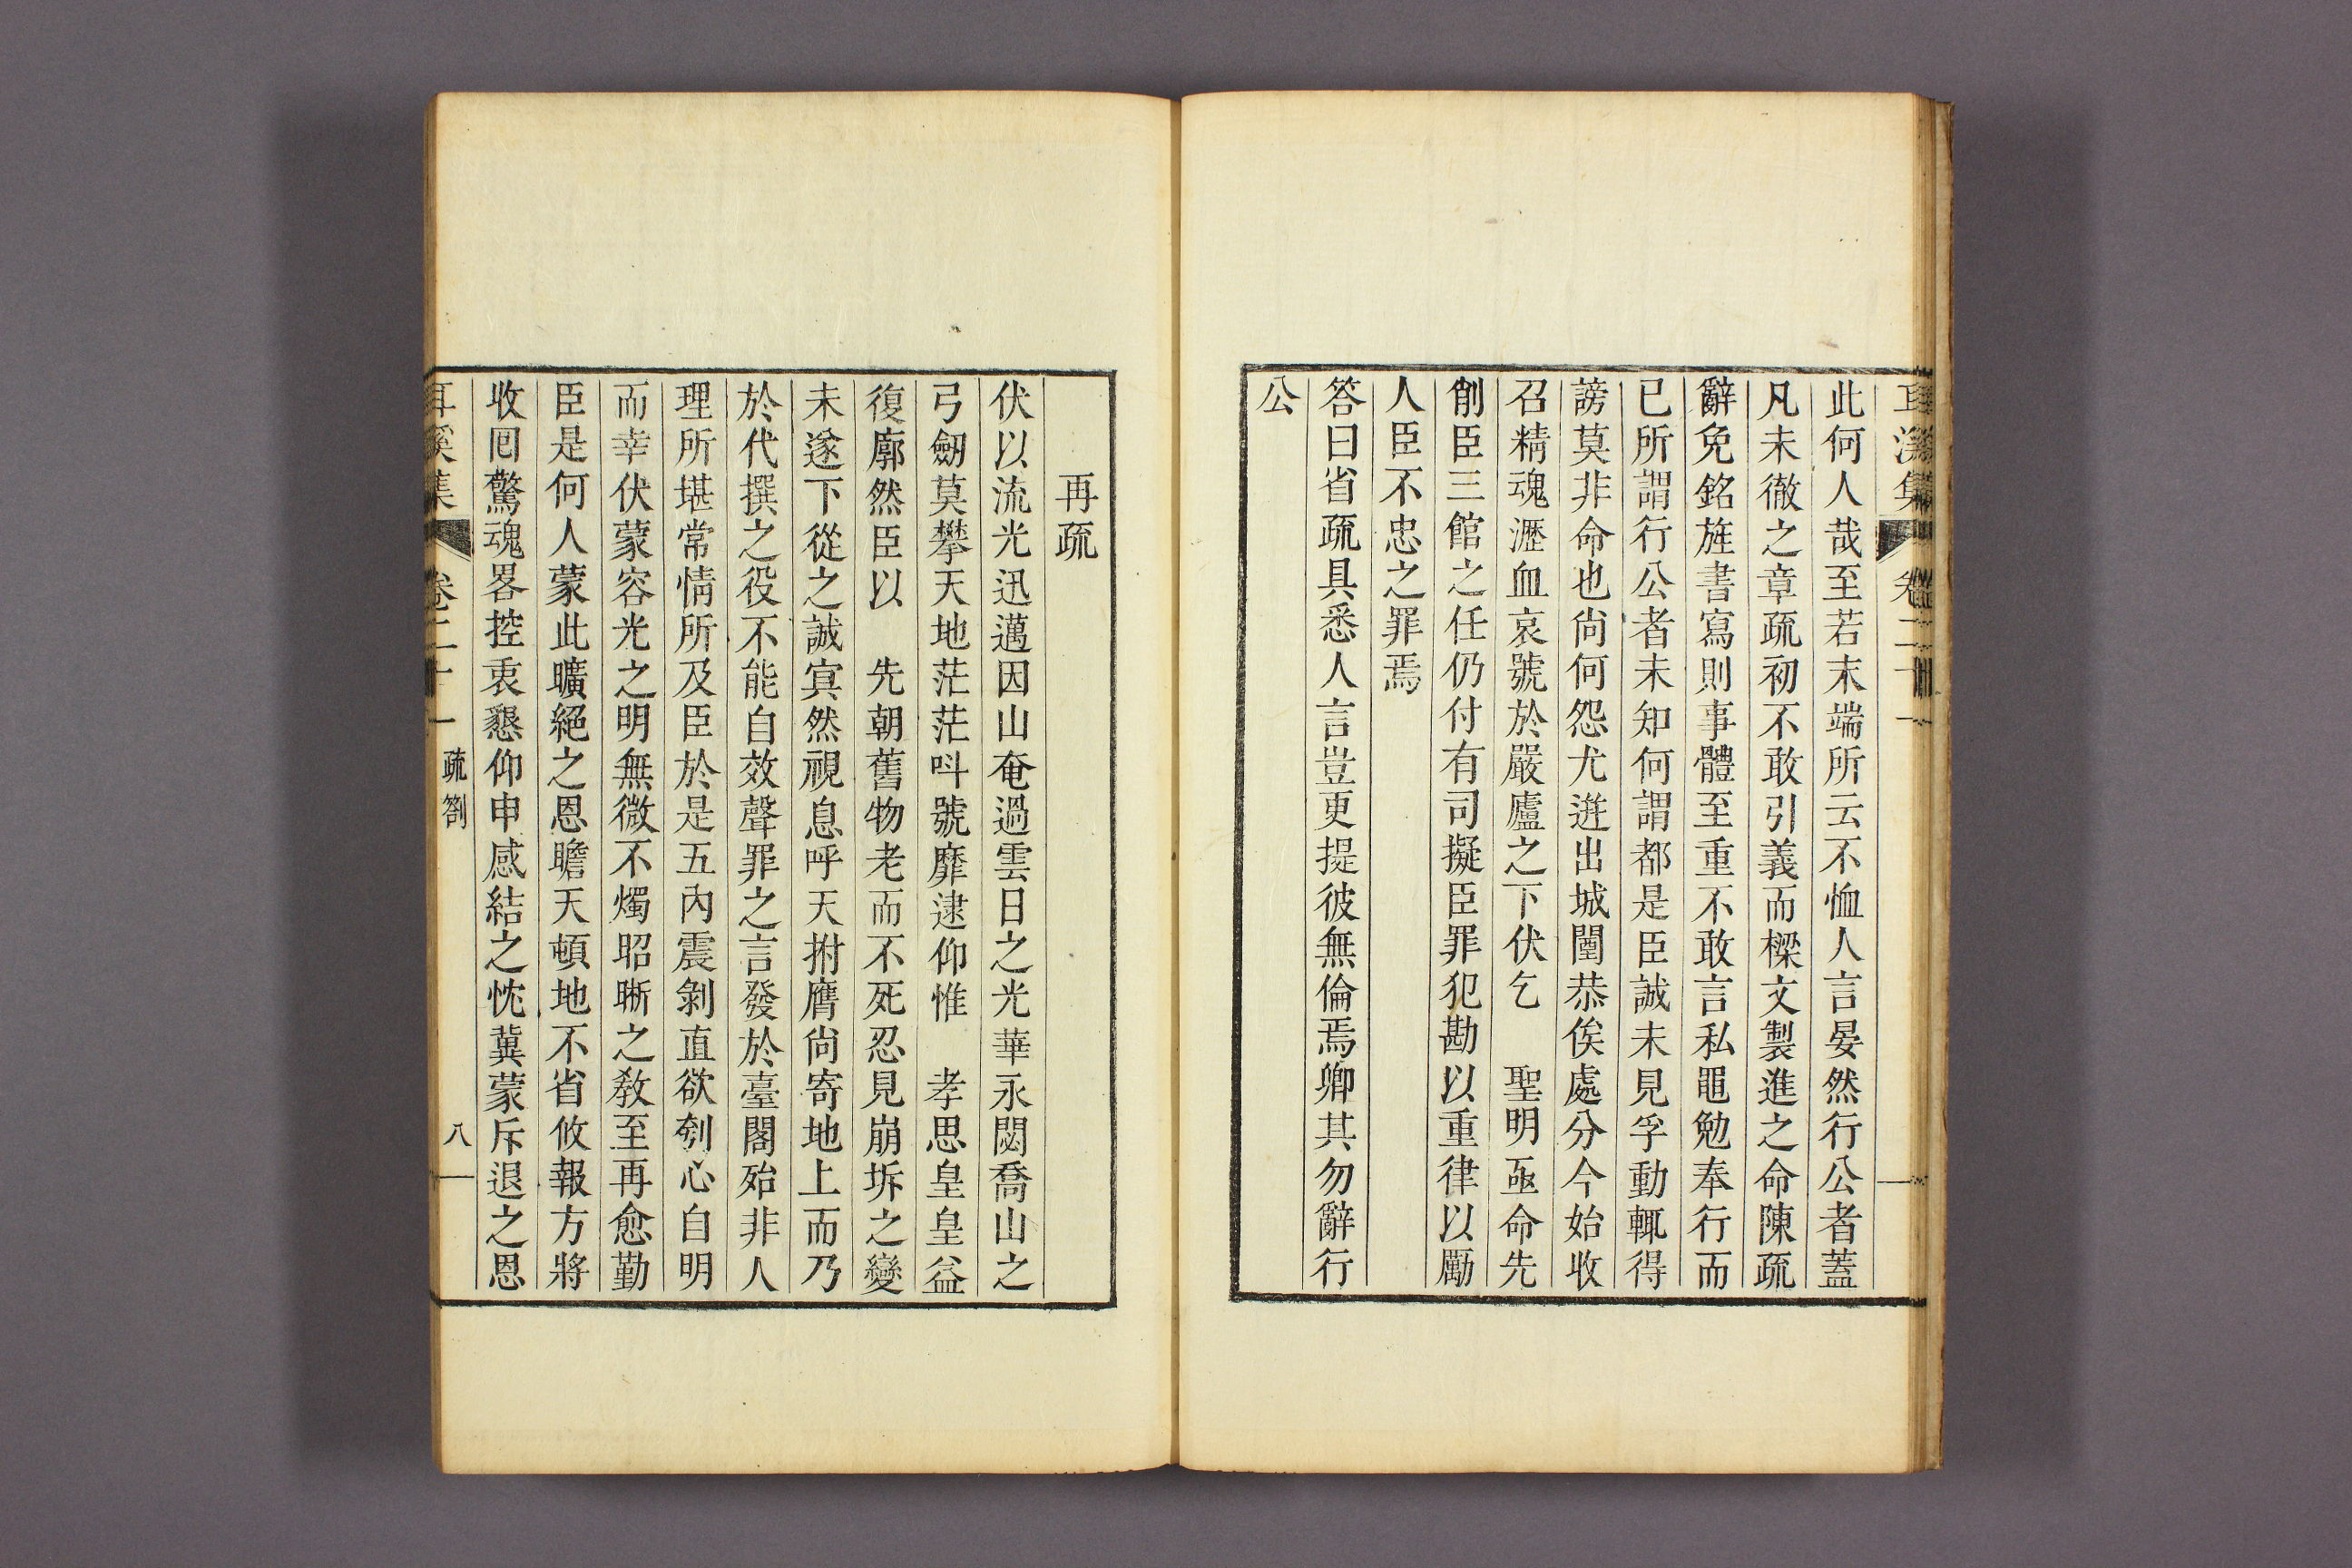 耳溪集 卷二十一
此何人哉至若末端所云不恤人言晏然行公者蓋
凡未徹之章疏初不敢引義而樑文製進之命陳疏
辭免銘旌書寫則事體至重不敢言私黽勉奉行而
已所謂行公者未知何謂都是臣誠未見孚動輒得
謗莫非命也尙何怨尤迸出城闉恭俟處分今始收
召精魂瀝血哀號於嚴廬之下伏乞　聖明亟命先
削臣三館之任仍付有司擬臣罪犯勘以重律以勵
人臣不忠之罪焉
答曰省疏具悉人言豈更提彼無倫焉卿其勿辭行
公
再疏
伏以流光迅邁因山奄過雲日之光華永閟喬山之
弓劒莫攀天地茫茫呌號靡逮仰惟　孝思皇皇益
復廓然臣以　先朝舊物老而不死忍見崩坼之變
未遂下從之誠冥然視息呼天拊膺尙寄地上而乃
於代撰之役不能自效聲罪之言發於臺閣殆非人
理所堪常情所及臣於是五內震剝直欲刳心自明
而幸伏蒙容光之明無微不燭昭晰之敎至再愈勤
臣是何人蒙此曠絕之恩瞻天頓地不省攸報方將
收回驚魂畧控衷懇仰申感結之忱冀蒙斥退之恩
耳溪集 卷二十一 疏箚 八